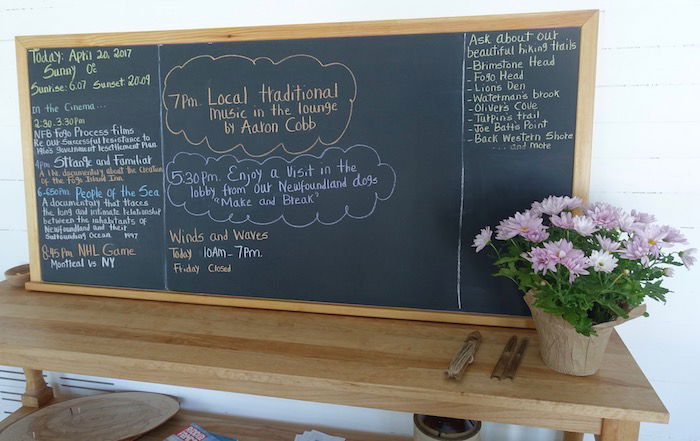 Today: April 20, 2017
Sunny 0c
Sunrise: 6:07 Sunset: 20:09
In the Cinema...
2:30-3:30pm
NFB Fogo Process films
Re our successful resistance to
1960's government resettlement Plan
4pm Strange and Familiar
documentary about the Creation
of the Fogo Island Inn
6-6:50pm People of the Sea
A documentary that traces
the long and intimate relationship
between the inhabitants of
Newfoundland and their
Surrounding Ocean 1997
8:45pm NHL Game
Montreal vs NY
7pm Local traditional
music in the lounge
by Aaron Cobb
5:30pm. Enjoy a visit in the
lobby from our Newfoundland dogs
"Make and Break"
Winds and Waves
Today 10Am - 7pm.
Friday Closed
Ask about our
beautiful hiking trails
- Brimstone Head
- Fogo Head
- Lions Den
- Waterman's brook
- Oliver's Cove
- Turpin's trail
- Joe Batts Point
- Back Western Shore
....and more